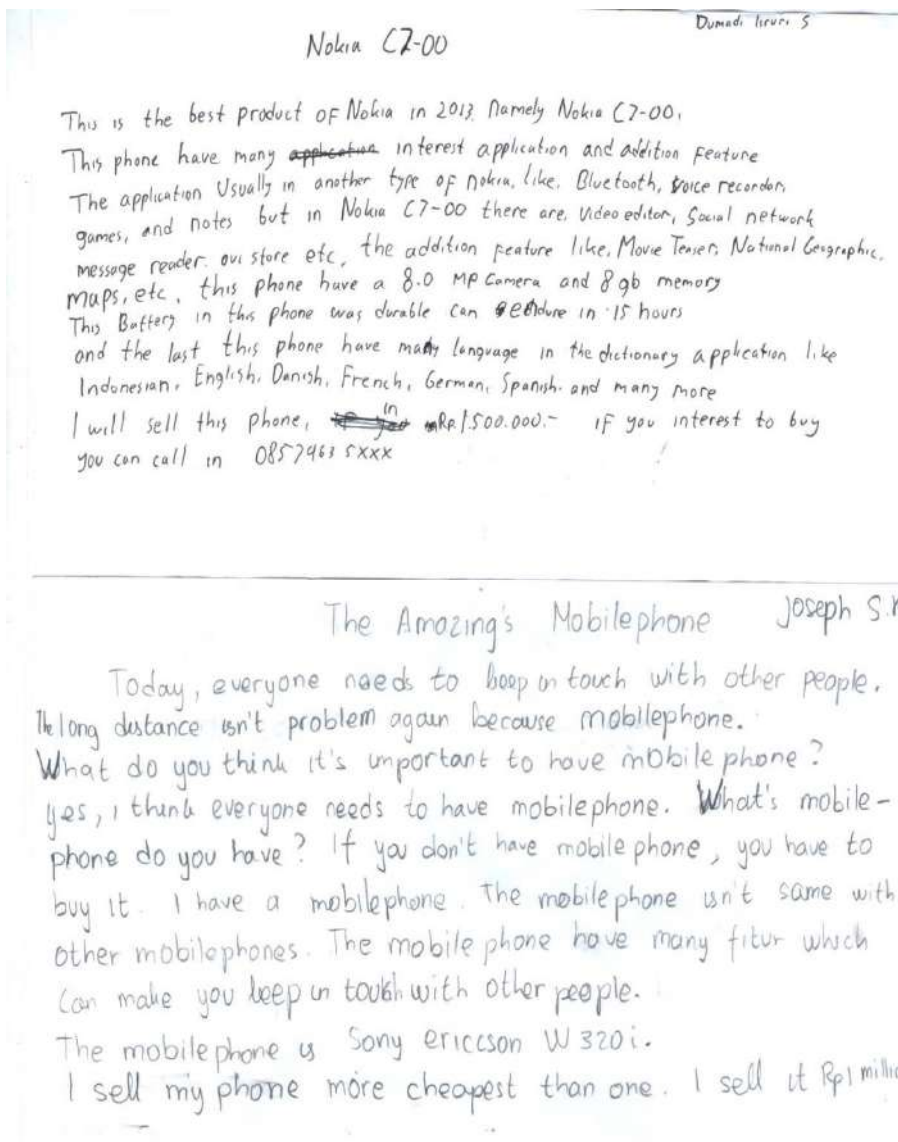 Nokia C7-00
Dumadi S
This is the best product of Nokia in 2013 namely Nokia C7-00.
This phone have many application interest application and addition feature
The application Usually in another type of nokia, like, Bluetooth, voice recorder,
games, and notes but in Nokia C7-00 there are, Video editor, Social network
message reader. ovi store etc, the addition feature like, Movie Teaser, National Geographic,
maps, etc, this phone have a 8.0 MP Camera and 8 gb memory
This Battery in this phone was durable can endure in 15 hours
and the last this phone have many language in the dictionary application like
Indonesian, English, Danish, French, German, Spanish. and many more
I will sell this phone, in Rp. 1.500.000.- if you interest to buy
you can call in 08579463 5xxx
The Amazing's Mobilephone
Joseph S.
Today, everyone needs to keep in touch with other people.
The long distance isn't problem again because mobilephone.
What do you think it's important to have mobile phone?
yes, i think everyone needs to have mobilephone. What's mobile-
phone do you have? If you don't have mobile phone, you have to
buy it. I have a mobilephone. The mobile phone isn't same with
other mobilephones. The mobile phone have many fitur which
can make you keep in touch with other people.
The mobile phone is Sony ericcson W 320i.
I sell my phone more cheapest than one. I sell it Rp1 millio